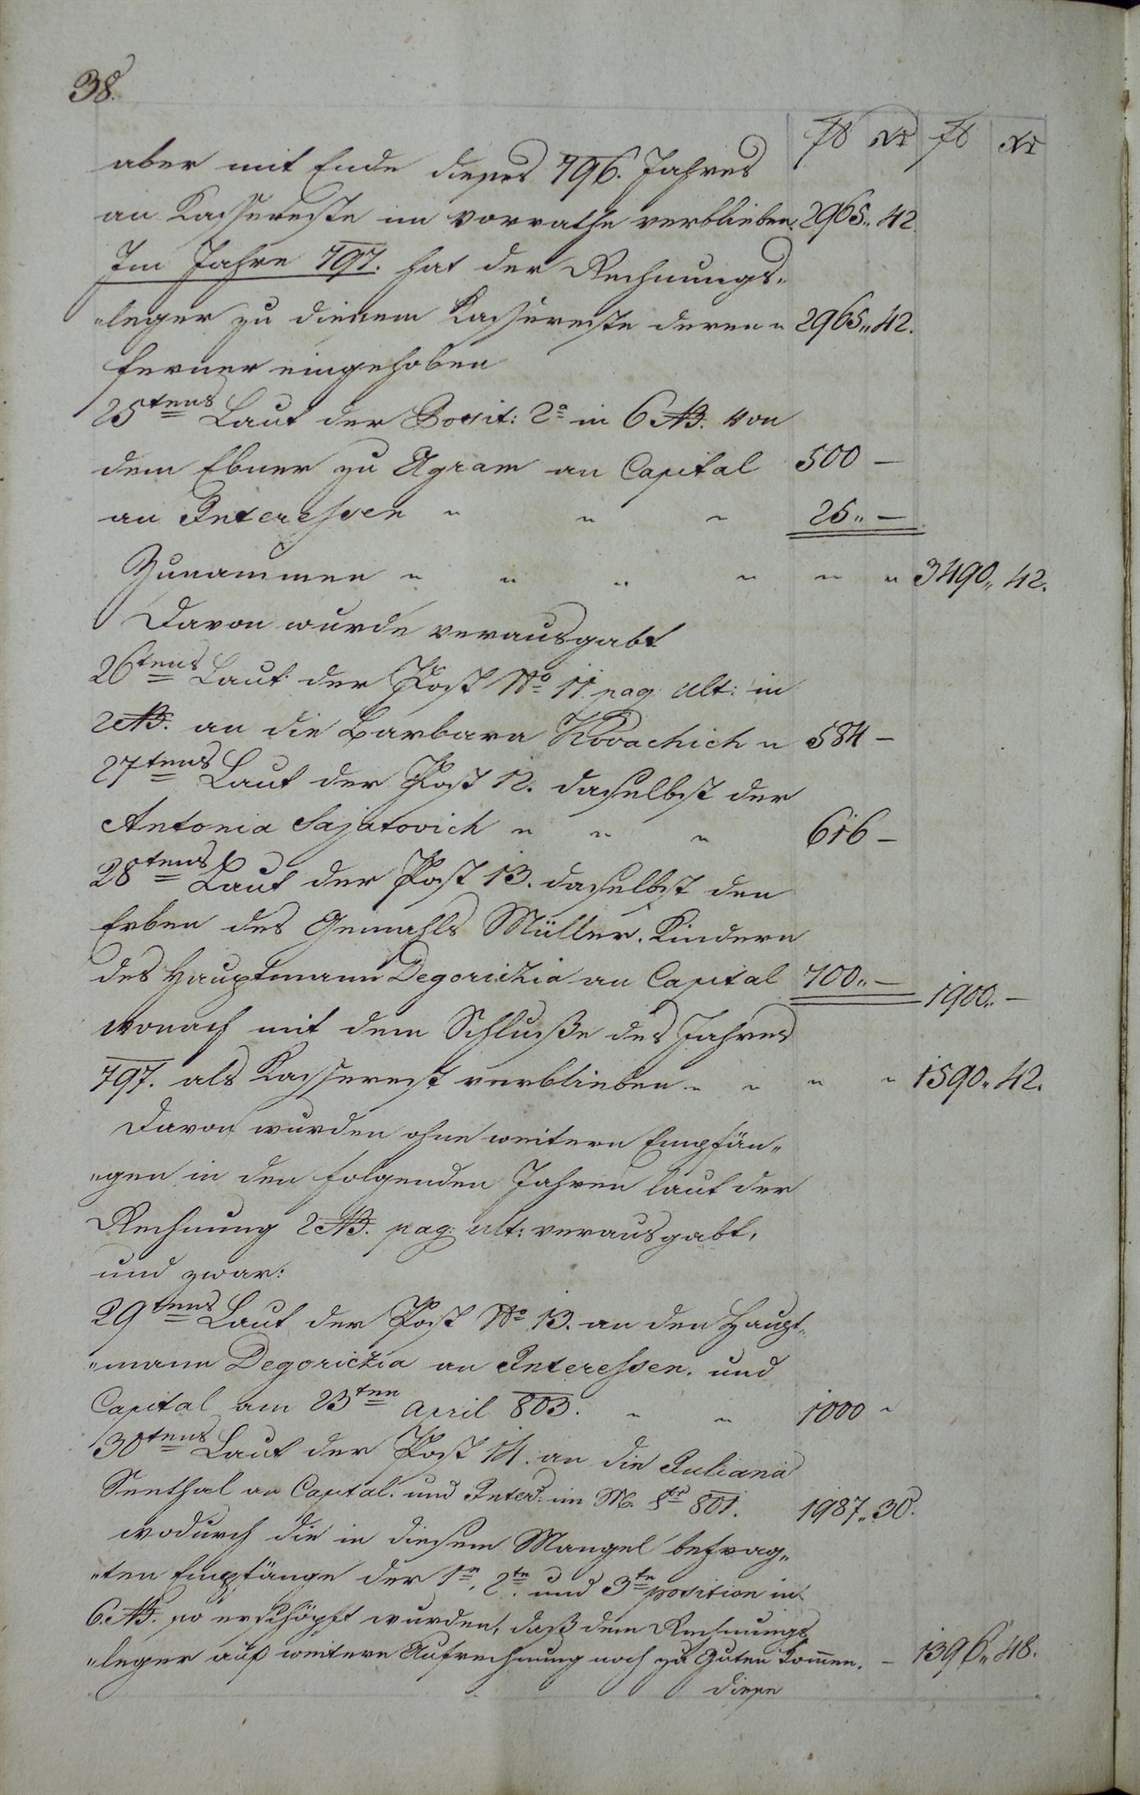 38.
f xr f xr
aber mit Ende dieses 796. Jahres
an Kasserreste im Vorrathe verblieben. 2965,, 42.
Im Jahre 797. hat der Rechnungs-
"leger zu diesem Kasserreste deren " 2965,, 42.
ferner eingehoben
25tens Laut der Posit: 2° in 6 AB. von
dem Ebner zu Agram an Capital 500 —
an Interessen " " " 25,, —
Zusammen " " " " " " 3490,, 42.
Davon wurde verausgabt
26tens Laut der Post No 11. pag: ult: in
2AB. an die Barbara Kovachich " 584 —
27tens Laut der Post 12. daselbst der
Antonia Sajatovich " " " 616 —
28tens Laut der Post 13. daselbst den
Erben des Gemahls Müller. Kindern
des Hauptmann Degoriczia an Capital 700,, — 1900,, —
wonach mit dem Schluße des Jahres
797. als Kasserrest verblieben " " " " 1590,, 42.
Davon wurden ohne weitern Empfän-
"gen in den folgenden Jahren laut der
Rechnung 2 AB. pag: ult: verausgabt,
und zwar:
29tens Laut der Post No 13. an den Haupt-
"mann Degoriczia an Interessen. und
Capital am 23ten April 803. " " 1000 "
30tens Laut der Post 14. an die Juliana
Senthal an Capital. und Inters: im M. 801. 1987,, 30.
wodurch die in diesem Mangel befrag-
"ten Empfänge der 1n, 2tn und 3tn position in
6 AB. so erschöpft wurden, daß dem Rechnungs
"leger auß weitere Aufrechnung noch zu Guten kommen. — 1396,, 48.
diese